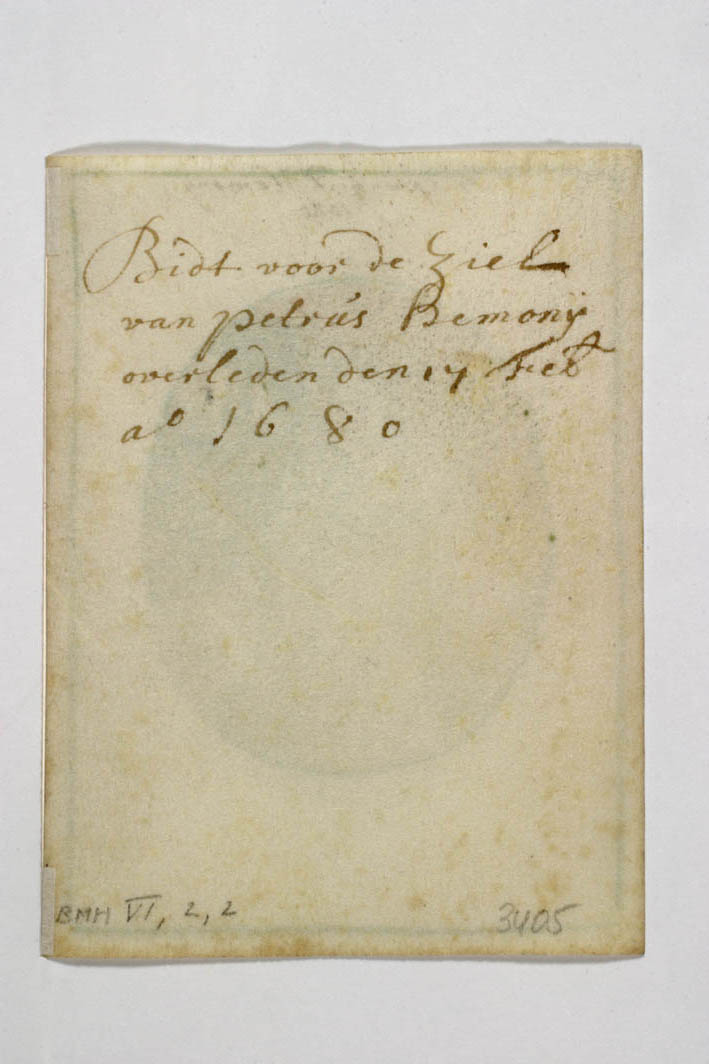 Bidt voor de ziel
van petrus Bemony
overleden den 17 feb
ao 1680
BMH VI, 2, 2
3405